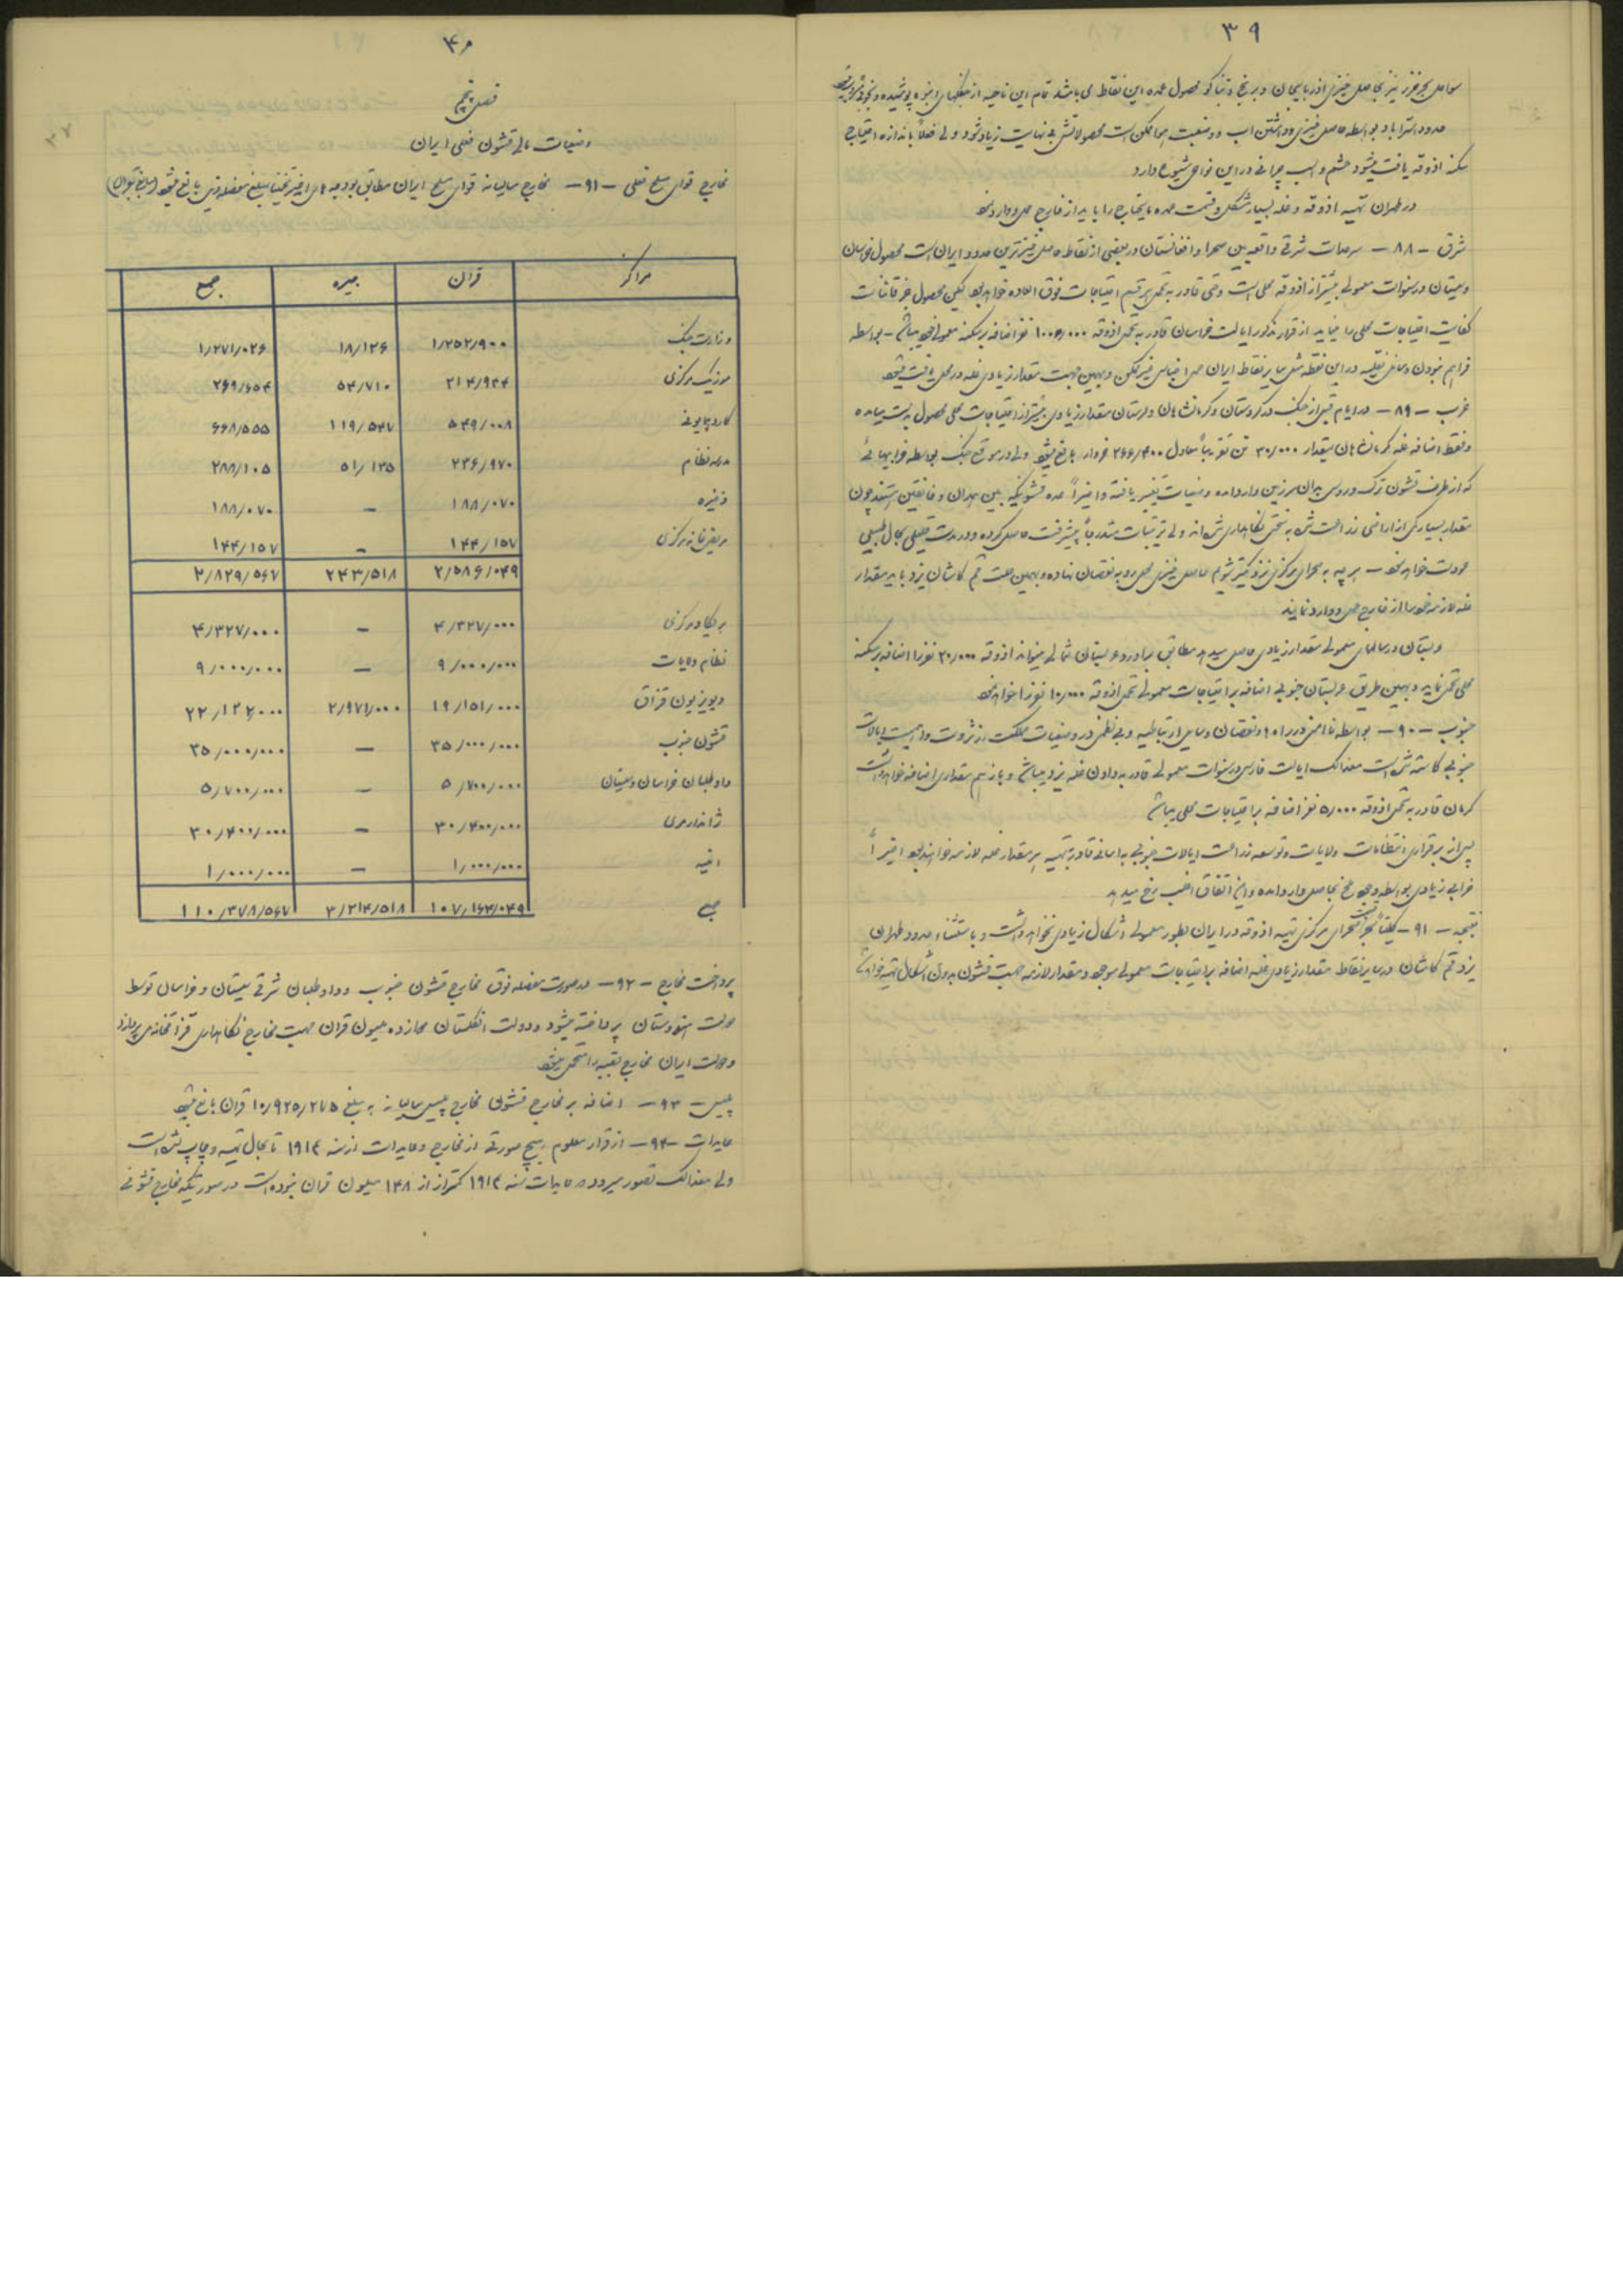 ۳۹
سواحل بحر خزر نیز بحاصل خیزی آذربایجان و برنج و تنباکو محصول عمده این نقاط می باشد تمام این ناحیه از جنگلهای انبوه پوشیده و بخوبی
حدود استراباد بواسطه حاصل خیزی و داشتن آب و وسعت اراضی ممکن است محصولاتش بی نهایت زیاد شود ولی فعلاً باندازه احتیاج
سکنه آذوقه یافت میشود حشم و اسب چرانی در این نواحی شیوع دارد
در طهران تهیه آذوقه و غله بسیار مشکل و قسمت عمده مایحتاج را باید از خارج حمل و وارد نمود
شرق – ۸۸ – سرحدات شرقی واقعه بین صحرا و افغانستان در بعضی از نقاط حاصل خیزترین حدود ایران است محصول خراسان
و سیستان در سنوات معمولی بیشتر از آذوقه محلی است و حتی قادر به تحمل هر قسم احتیاجات فوق العاده خواهد بود لیکن محصول
کفایت احتیاجات محلی را مینماید از قرار مذکور ایالت خراسان قادر به تحمل آذوقه نفر اضافه بر سکنه معمولی خود میباشد – بواسطه
فراهم نبودن وسائل نقلیه در این نقطه مثل سایر نقاط ایران حمل اجناس غیر ممکن و بهمین جهت مقدار زیادی غله در محل یافت میشود
غرب – ۸۹ – در ایام قبل از جنگ در کردستان و کرمانشاهان و لرستان مقدار زیادی بیشتر از احتیاجات محلی محصول بدست میامده
و فقط اضافه غله کرمانشاهان بمقدار ۳۰/۰۰۰ تن تقریباً معادل ۲۶۶/۴۰۰ خروار بالغ میشود ولی در موقع جنگ بواسطه خرابیهائی
که از طرف قشون ترک و روس بدان سرزمین وارد آمده وضعیات تغییر یافته و اخیراً عده قشونیکه بین همدان و خانقین هستند چون
مقدار بسیار کمی از اراضی زراعت شده به سختی نگاهداری شده اند ولی ترتیبات متدرجاً پیشرفت حاصل کرده و در مدت قلیلی بحال طبیعی
عودت خواهد نمود – هر چه به صحرای مرکزی نزدیکتر شویم حاصل خیزی محل رو به نقصان نهاده و بهمین علت قم کاشان یزد باید مقدار
غله لازمه خود را از خارج حمل و وارد نمایند
عربستان در سالهای معمولی مقدار زیادی حاصل میدهد مطابق برآورد عربستان شمالی میتواند آذوقه ۲۰/۰۰۰ نفر را اضافه بر سکنه
محلی تحمل نماید و بهمین طریق عربستان جنوبی اضافه بر احتیاجات معمولی تحمل آذوقه ۱۰/۰۰۰ نفر را خواهد نمود
جنوب – ۹۰ – بواسطه ناامنی در راه ها و نقصان وسایل ارتباطیه و بی نظمی در وضعیات مملکت از ثروت و اهمیت ایالات
جنوبی کاسته شده است معذالک ایالت فارس در سنوات معمولی قادر به دادن غله یزد میباشد و باز هم مقداری اضافه خواهد داشت
کرمان قادر به تحمل آذوقه ۵/۰۰۰ نفر اضافه بر احتیاجات محلی میباشد
پس از برقراری انتظامات ولایات و توسعه زراعت ایالات جنوبی به آسانی قادر به تهیه هر مقدار غله لازمه خواهند بود اخیراً
خرابی زیادی بواسطه وجود ملخ بحاصل وارد آمده و این اتفاق اغلب رخ میدهد
نتیجه – ۹۱ – صحرای مرکزی تهیه آذوقه در ایران بطور معمولی اشکال زیادی نخواهد داشت و باستثناء حدود طهران
یزد قم کاشان در سایر نقاط مقدار زیادی غله اضافه بر احتیاجات معمولی موجود و مقدار لازمه جهت قشون بدون اشکال تهیه خواهد شد
۴۰
فصل پنجم
وضعیات مالی قشون فعلی ایران
مخارج قوای مسلح فعلی – ۹۱ – مخارج سالیانه قوای مسلح ایران مطابق بودجه های اخیر تخمیناً بمبلغ مفصله ذیل بالغ میشود (مبالغ بقران)
مراکز قران جیره جمع
وزارت جنگ ۱/۲۵۲/۹۰۰ ۱۸/۱۲۶ ۱/۲۷۱/۰۲۶
موزیک مرکزی ۲۱۴/۹۴۴ ۵۴/۷۱۰ ۲۶۹/۶۵۴
گارد همایونی ۵۴۹/۰۰۸ ۱۱۹/۵۴۷ ۶۶۸/۵۵۵
مدرسه نظام ۲۳۶/۹۷۰ ۵۱/۱۳۵ ۲۸۸/۱۰۵
ذخیره ۱۸۸/۰۷۰ – ۱۸۸/۰۷۰
مریضخانه مرکزی ۱۴۴/۱۵۷ – ۱۴۴/۱۵۷
۲/۵۸۶/۰۴۹ ۲۴۳/۵۱۸ ۲/۸۲۹/۵۶۷
بریگاد مرکزی ۴/۳۲۷/۰۰۰ – ۴/۳۲۷/۰۰۰
نظام ولایات ۹/۰۰۰/۰۰۰ – ۹/۰۰۰/۰۰۰
دیویزیون قزاق ۱۹/۱۵۱/۰۰۰ ۲/۹۷۱/۰۰۰ ۲۲/۱۲۲/۰۰۰
قشون جنوب ۳۵/۰۰۰/۰۰۰ – ۳۵/۰۰۰/۰۰۰
داوطلبان خراسان و سیستان ۵/۷۰۰/۰۰۰ – ۵/۷۰۰/۰۰۰
ژاندارمری ۳۰/۴۰۰/۰۰۰ – ۳۰/۴۰۰/۰۰۰
امنیه ۱/۰۰۰/۰۰۰ – ۱/۰۰۰/۰۰۰
جمع ۱۰۷/۱۶۴/۰۴۹ ۳/۲۱۴/۵۱۸ ۱۱۰/۳۷۸/۵۶۷
پرداخت مخارج – ۹۲ – در صورت مفصله فوق مخارج قشون جنوب و داوطلبان شرقی سیستان و خراسان توسط
دولت هندوستان پرداخته میشود و دولت انگلستان دوازده میلیون قران جهت مخارج نگاهداری قزاقخانه می پردازد
و دولت ایران مخارج بقیه را متحمل میشود
پلیس – ۹۳ – اضافه بر مخارج قشونی مخارج پلیس سالیانه به مبلغ ۱۰/۹۲۵/۲۷۵ قران بالغ میشود
عایدات – ۹۴ – از قرار معلوم هیچ صورتی از مخارج و عایدات از سنه ۱۹۱۴ تا بحال تهیه و چاپ نشده است
ولی معذالک تصور میرود که عایدات سنه ۱۹۱۴ کمتر از ۱۴۸ میلیون قران نبوده است در صورتیکه مخارج قشونی